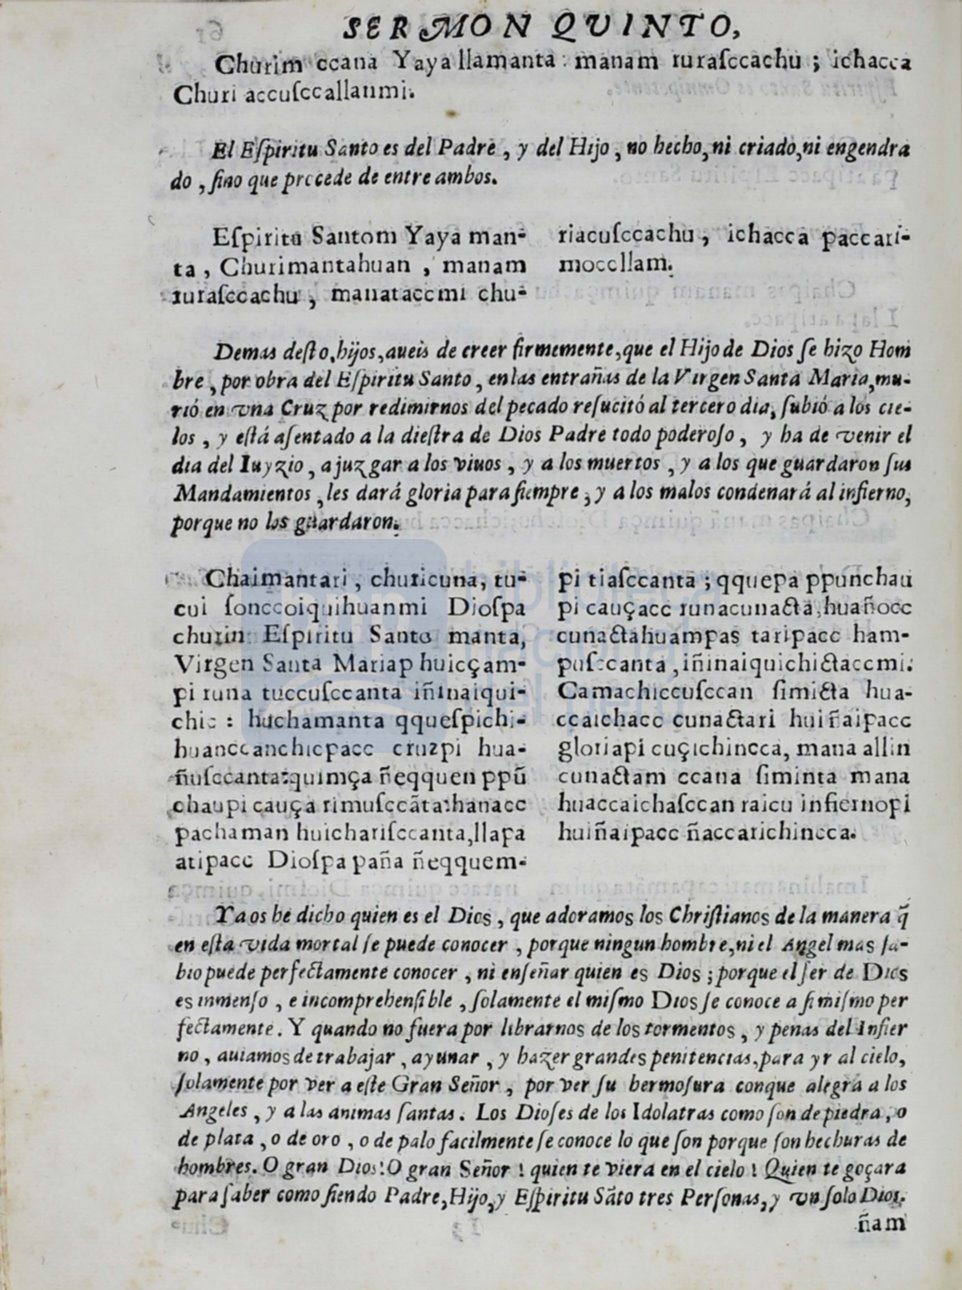 SERMON QVINTO,
Churim ccana Yaya llamanta : manam ruraſccachu ; ichacca
Churi accuſccallanmi.
El Eſpiritu Santo es del Padre , y del Hijo , no hecho, ni criado, ni engendra
do , ſino que procede de entre ambos.
Eſpiritu Santom Yaya man-
ta , Churimantahuan , manam
ruraſccachu , manataccmi chu-
riacuſccachu , ichacca paccari-
moccllam.
Demas deſto, hijos, aueis de creer firmemente, que el Hijo de Dios ſe hizo Hom
bre , por obra del Eſpiritu Santo , en las entrañas de la Virgen Santa Maria, mu-
rió en vna Cruz por redimirnos del pecado reſucitó al tercero dia, ſubió a los cie-
los , y eſtá aſentado a la dieſtra de Dios Padre todo poderoſo , y ha de venir el
dia del Iuyzio , a juzgar a los viuos , y a los muertos , y a los que guardaron ſus
Mandamientos , les dará gloria para ſiempre ; y a los malos condenará al infierno,
porque no los guardaron.
Chaimantari , churicuna, tu-
cui ſonccoiquihuanmi Dioſpa
churin Eſpiritu Santo manta,
Virgen Santa Mariap huicçam-
pi runa tuccuſccanta iñinaiqui-
chic : huchamanta qqueſpichi-
huanccanchicpacc cruzpi hua-
ñuſccanta: quimça ñeqquen ppũ
chaupi cauça rimuſccãta: hanacc
pachaman huichariſccanta, llapa
atipacc Dioſpa paña ñeqquem-
pi tiaſccanta ; qquepa ppunchau
pi cauçacc runacunacta, huañocc
cunactahuampas taripacc ham-
puſccanta , iñinaiquichictaccmi.
Camachiccuſccan ſimicta hua-
ccaichacc cunactari huiñaipacc
gloriapi cuçichincca, mana allin
cunactam ccana ſiminta mana
huaccaichaſccan raicu infiernopi
huiñaipacc ñaccarichincca.
Ya os he dicho quien es el Dios , que adoramos los Chriſtianos de la manera q̃
en eſta vida mortal ſe puede conocer , porque ningun hombre, ni el Angel mas ſa-
bio puede perfectamente conocer , ni enſeñar quien es Dios ; porque el ſer de Dios
es inmenſo , e incomprehenſible , ſolamente el miſmo Dios ſe conoce a ſi miſmo per
fectamente. Y quando no fuera por librarnos de los tormentos , y penas del Infier
no , auiamos de trabajar , ayunar , y hazer grandes penitencias, para yr al cielo,
ſolamente por ver a eſte Gran Señor , por ver ſu hermoſura conque alegra a los
Angeles , y a las animas ſantas. Los Dioſes de los Idolatras como ſon de piedra , o
de plata , o de oro , o de palo facilmente ſe conoce lo que ſon porque ſon hechuras de
hombres. O gran Dios! O gran Señor ! quien te viera en el cielo ! Quien te goçara
para ſaber como ſiendo Padre, Hijo, y Eſpiritu Sãto tres Perſonas, y vn ſolo Dios.
ñam